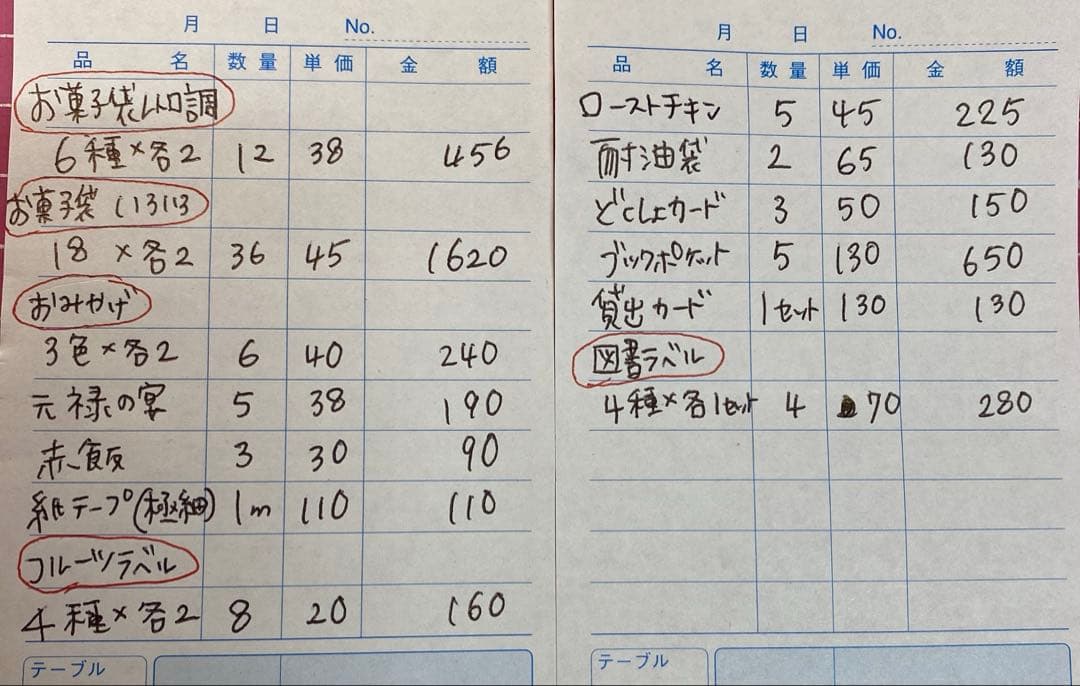 月 日 No.
品 名 数量 単価 金 額
お菓子袋レトロ調
6種×各2 12 38 456
お菓子袋 いろいろ
18 ×各2 36 45 1620
おみやげ
3色×各2 6 40 240
元禄の宴 5 38 190
赤飯 3 30 90
紙テープ(極細) 1m 110 110
フルーツラベル
4種×各2 8 20 160
テーブル
月 日 No.
品 名 数量 単価 金 額
ローストチキン 5 45 225
耐油袋 2 65 130
どくしょカード 3 50 150
ブックポケット 5 130 650
貸出カード 1セット 130 130
図書ラベル
4種×各1セット 4 70 280
テーブル